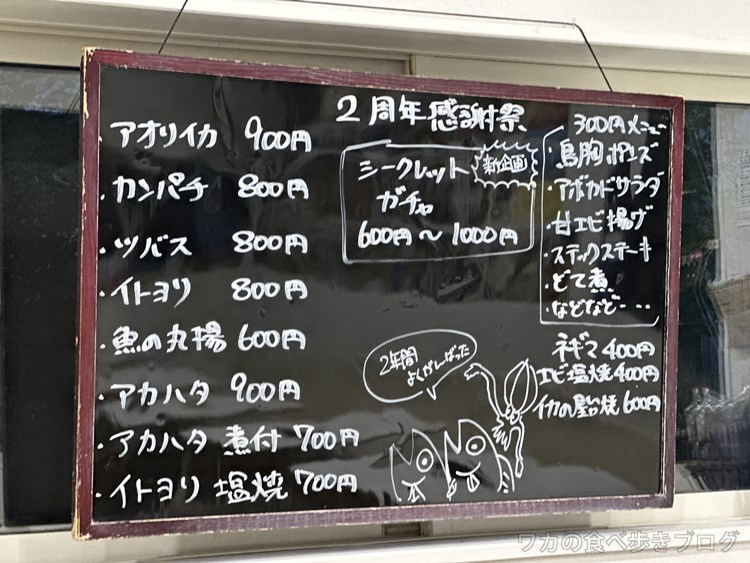 2周年感謝祭
・アオリイカ 900円
・カンパチ 800円
・ツバス 800円
・イトヨリ 800円
・魚の丸揚 600円
・アカハタ 900円
・アカハタ 煮付 700円
・イトヨリ 塩焼 700円
シークレット
ガチャ
新企画
600円〜1000円
300円メニュー
・鳥胸ポンズ
・アボカドサラダ
・甘エビ揚げ
・ステックステーキ
・どて煮
・などなど・・・
ネギマ 400円
エビ塩焼 400円
イカの 焼 600円
2年間
よくがんばった
ワカの食べ歩きブログ